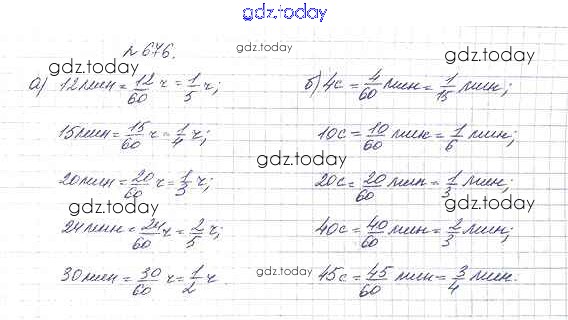 gdz.today
№ 676.
gdz.today
gdz.today
gdz.today
а) 12 мин = 12/60 ч = 1/5 ч;
15 мин = 15/60 ч = 1/4 ч;
20 мин = 20/60 ч = 1/3 ч;
24 мин = 24/60 ч = 2/5 ч;
30 мин = 30/60 ч = 1/2 ч.
б) 4с = 4/60 мин = 1/15 мин;
10с = 10/60 мин = 1/6 мин;
gdz.today
20с = 20/60 мин = 1/3 мин;
gdz.today
gdz.today
40с = 40/60 мин = 2/3 мин;
gdz.today
45с = 45/60 мин = 3/4 мин.